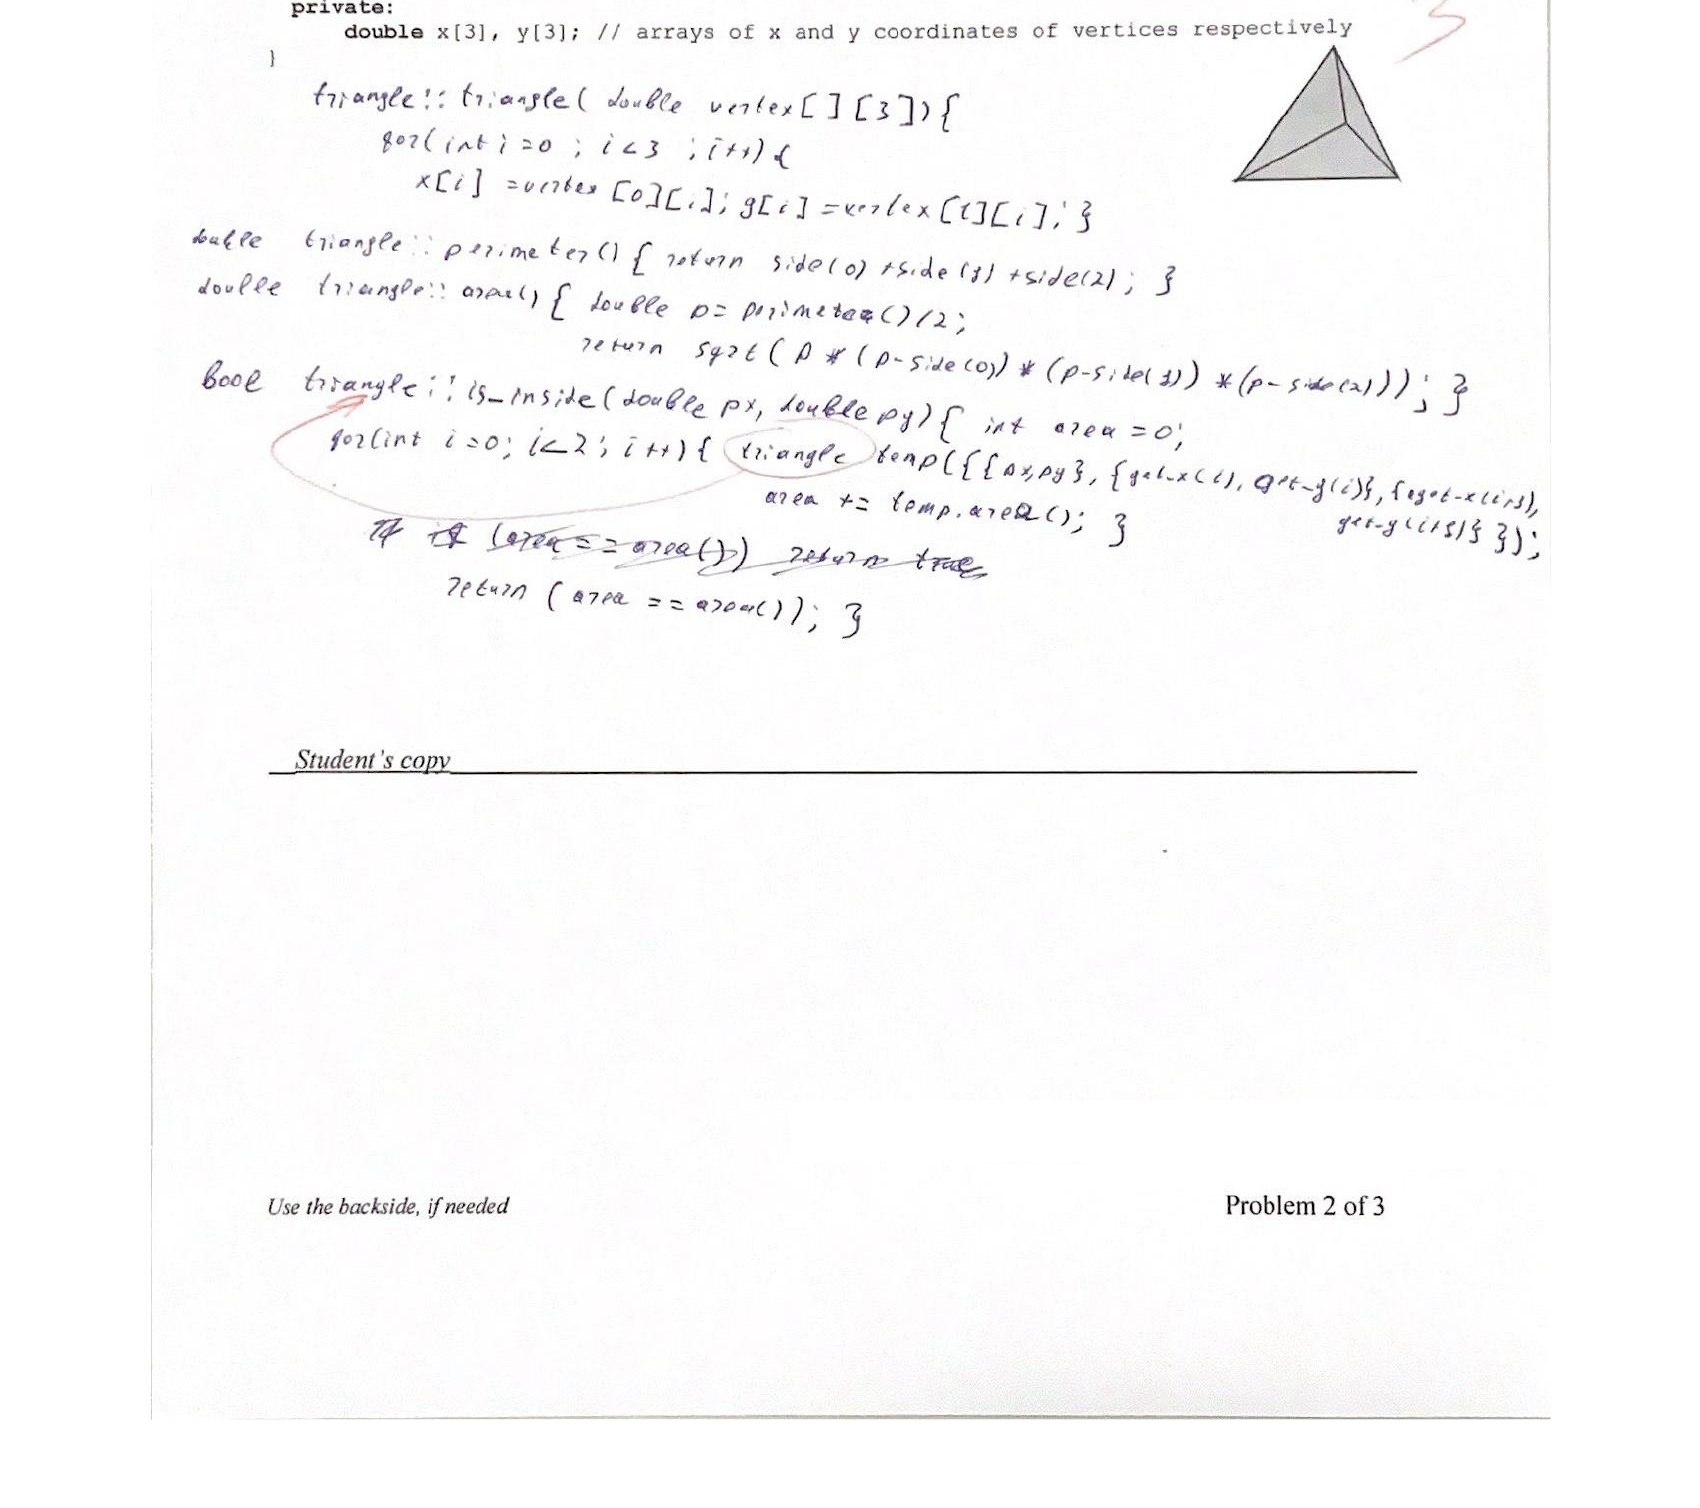 private:
double x[3], y[3]; // arrays of x and y coordinates of vertices respectively
}
3
triangle:: triangle( double vertex[ ][3]){
for(int i=0 ; i<3 ; i++){
x[i] =vertex [0][i]; y[i] =vertex [1][i]; }
double triangle:: perimeter() { return side(0) +side(1) +side(2); }
double triangle:: area() { double p= perimeter()/2;
return sqrt( p * (p-side(0)) * (p-side(1)) * (p-side(2))); }
bool triangle:: is_inside( double px, double py) { int area =0;
for(int i=0; i<2; i++) { triangle temp({{px,py}, {get-x(i), get-y(i)}, {get-x(i+1),
get-y(i+1)} });
area += temp.area(); }
if (area==area()) return true
return ( area == area()); }
Student's copy
Use the backside, if needed
Problem 2 of 3